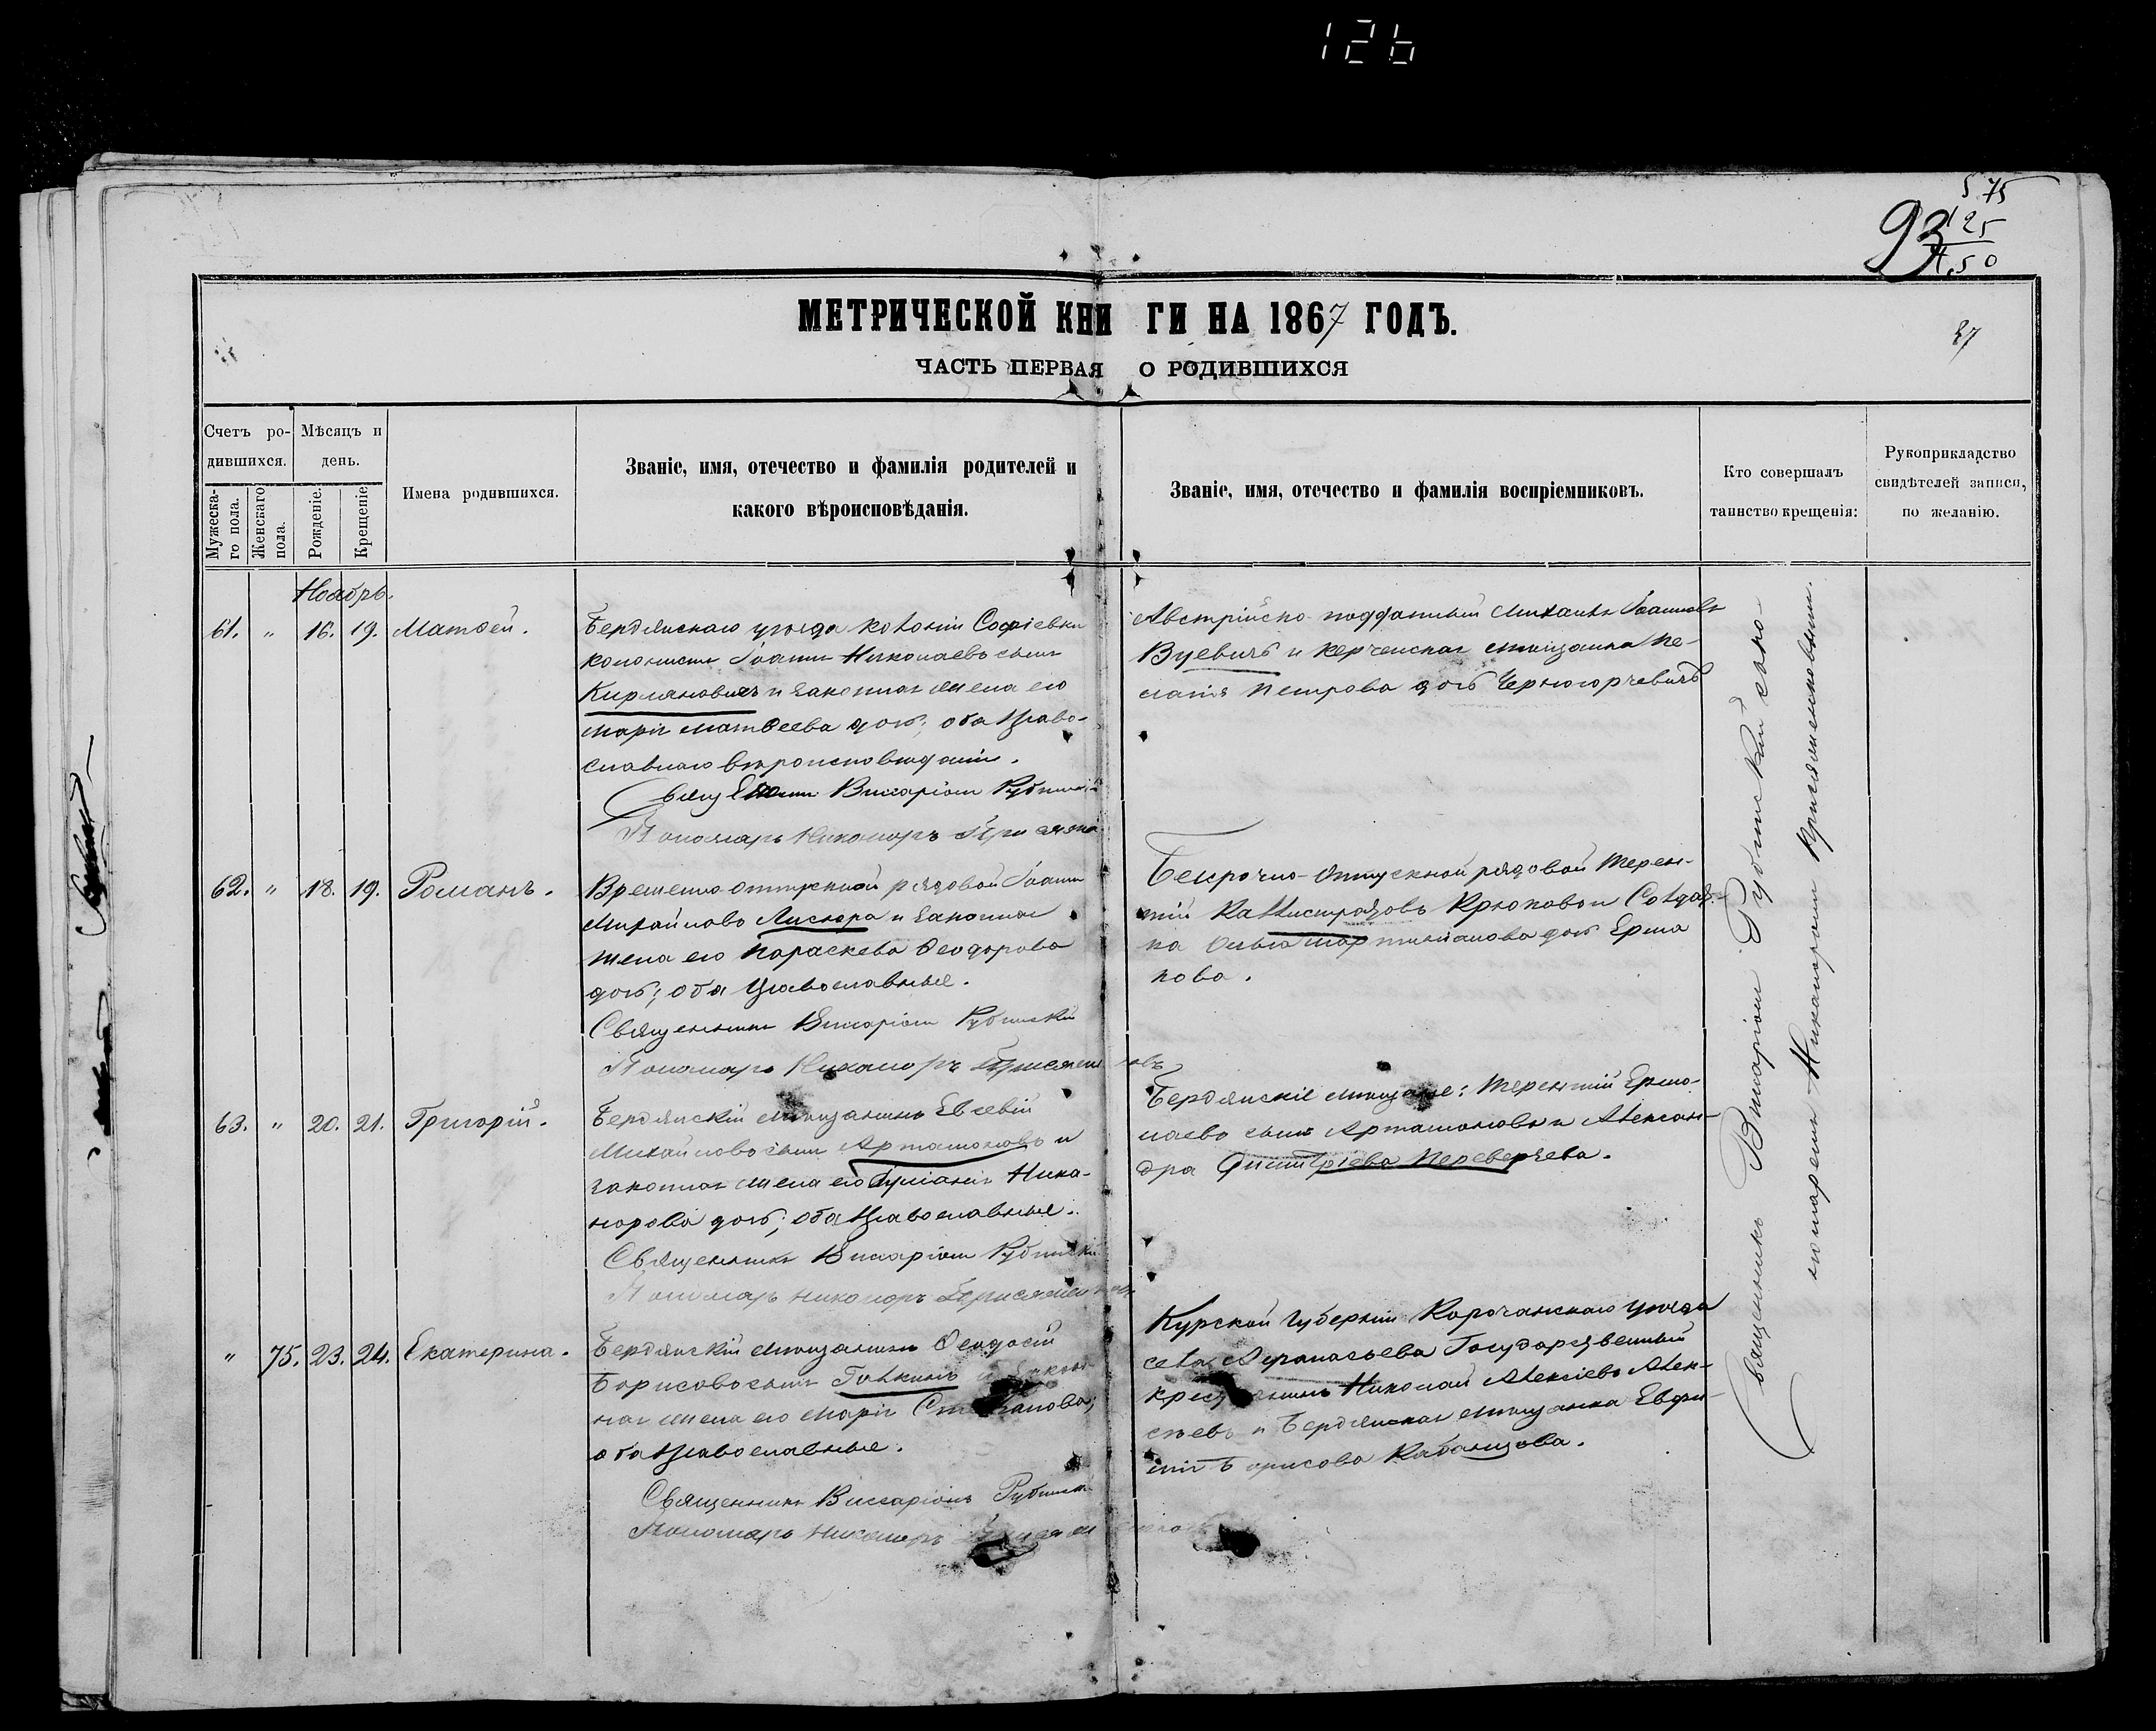 126
5 75
93
1 25
4.50
МЕТРИЧЕСКОЙ КНИГИ НА 1867 ГОДЪ.
37
ЧАСТЬ ПЕРВАЯ О РОДИВШИХСЯ
Счетъ ро-
дившихся.
Мужеска-
го пола.
Женскаго
пола.
Мѣсяцъ и
день.
Рожденіе.
Крещеніе
Имена родившихся.
Званіе, имя, отечество и фамилія родителей и
какого вѣроисповѣданія.
Званіе, имя, отечество и фамилія воспріемниковъ.
Кто совершалъ
таинство крещенія:
Рукоприкладство
свидѣтелей записи,
по желанію.
Ноябрь.
61. " 16. 19. Матѳей.
Бердянскаго уѣзда колоніи Софіевки
колонистъ Іоаннъ Николаевъ сынъ
Кирьяновичъ и законная жена его
Марія Матѳеева дочь; оба Право-
славнаго вѣроисповѣданія.
Священникъ Виссаріонъ Рубинскій
Пономарь Никаноръ
Австрійско-подданный Михаилъ Іоанновъ
Вуевичъ и Керченская мѣщанка Пе-
лагія Петрова дочь Черногорчевичъ
62. " 18. 19. Романъ.
Временно-отпускной рядовой Іоаннъ
Михайловъ Лисюра и законная
жена его Параскева Ѳеодорова
дочь; оба Православные.
Священникъ Виссаріонъ Рубинскій
Пономарь Никаноръ
Безсрочно-отпускной рядовой Терен-
тій Каллистратовъ Крюковъ и Солдат-
ка дочь Ерма
кова.
63. " 20. 21. Григорій.
Бердянскій мѣщанинъ Евсевій
Михайловъ сынъ Артамоновъ и
законная жена его Іуліанія Ника-
норова дочь; оба Православные.
Священникъ Виссаріонъ Рубинскій
Пономарь Никаноръ
Бердянскіе мѣщане: Терентій Ермо-
лаевъ сынъ Артамоновъ и Алексан-
дра Димитріева Переверзева.
" 75. 23. 24. Екатерина.
Бердянскій мѣщанинъ Ѳеодосій
Борисовъ сынъ Галкинъ и закон-
ная жена его Марія Степанова;
оба Православные.
Священникъ Виссаріонъ Рубинскій
Пономарь Никаноръ
Курской Губерніи Корочанскаго уѣзда
села Аѳанасьева Государственный
крестьянинъ Николай Алексѣевъ Алек-
сѣевъ и Бердянская мѣщанка Евфи-
мія Борисова Кабанцова.
Священникъ Виссаріонъ Рубинскій съ по-
номаремъ Никаноромъ